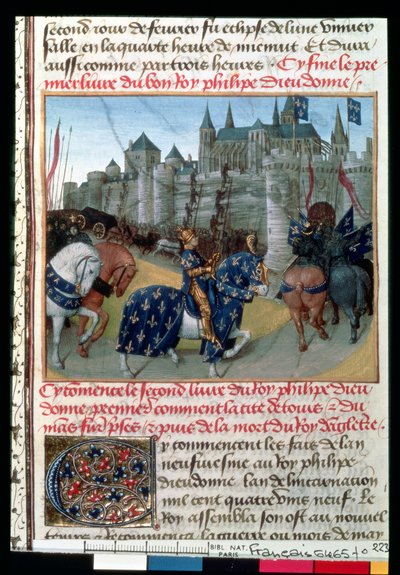 second jour de fevrier fu eclipse de lune univer
salle en la quarte heure de mienuit. Et dura
aussi comme par trois heures. Cy fine le pre
mier livre du bon Roy phelipe dieu donne.
Cy comence le second livre du Roy phelipe dieu
donne
premier comment la cite de tours & du
mans furent prises & puis de la mort du Roy dangleterre.
Cy commencent les fais de lan
neufviesme au Roy phelipe
dieudonne. lan de lincarnation
mil cent quatre vins neuf. Le
Roy assembla son ost au nouvel
temps & recommenca la guerre ou mois de may
BIBL. NAT. PARIS
Français 6465 fo 223